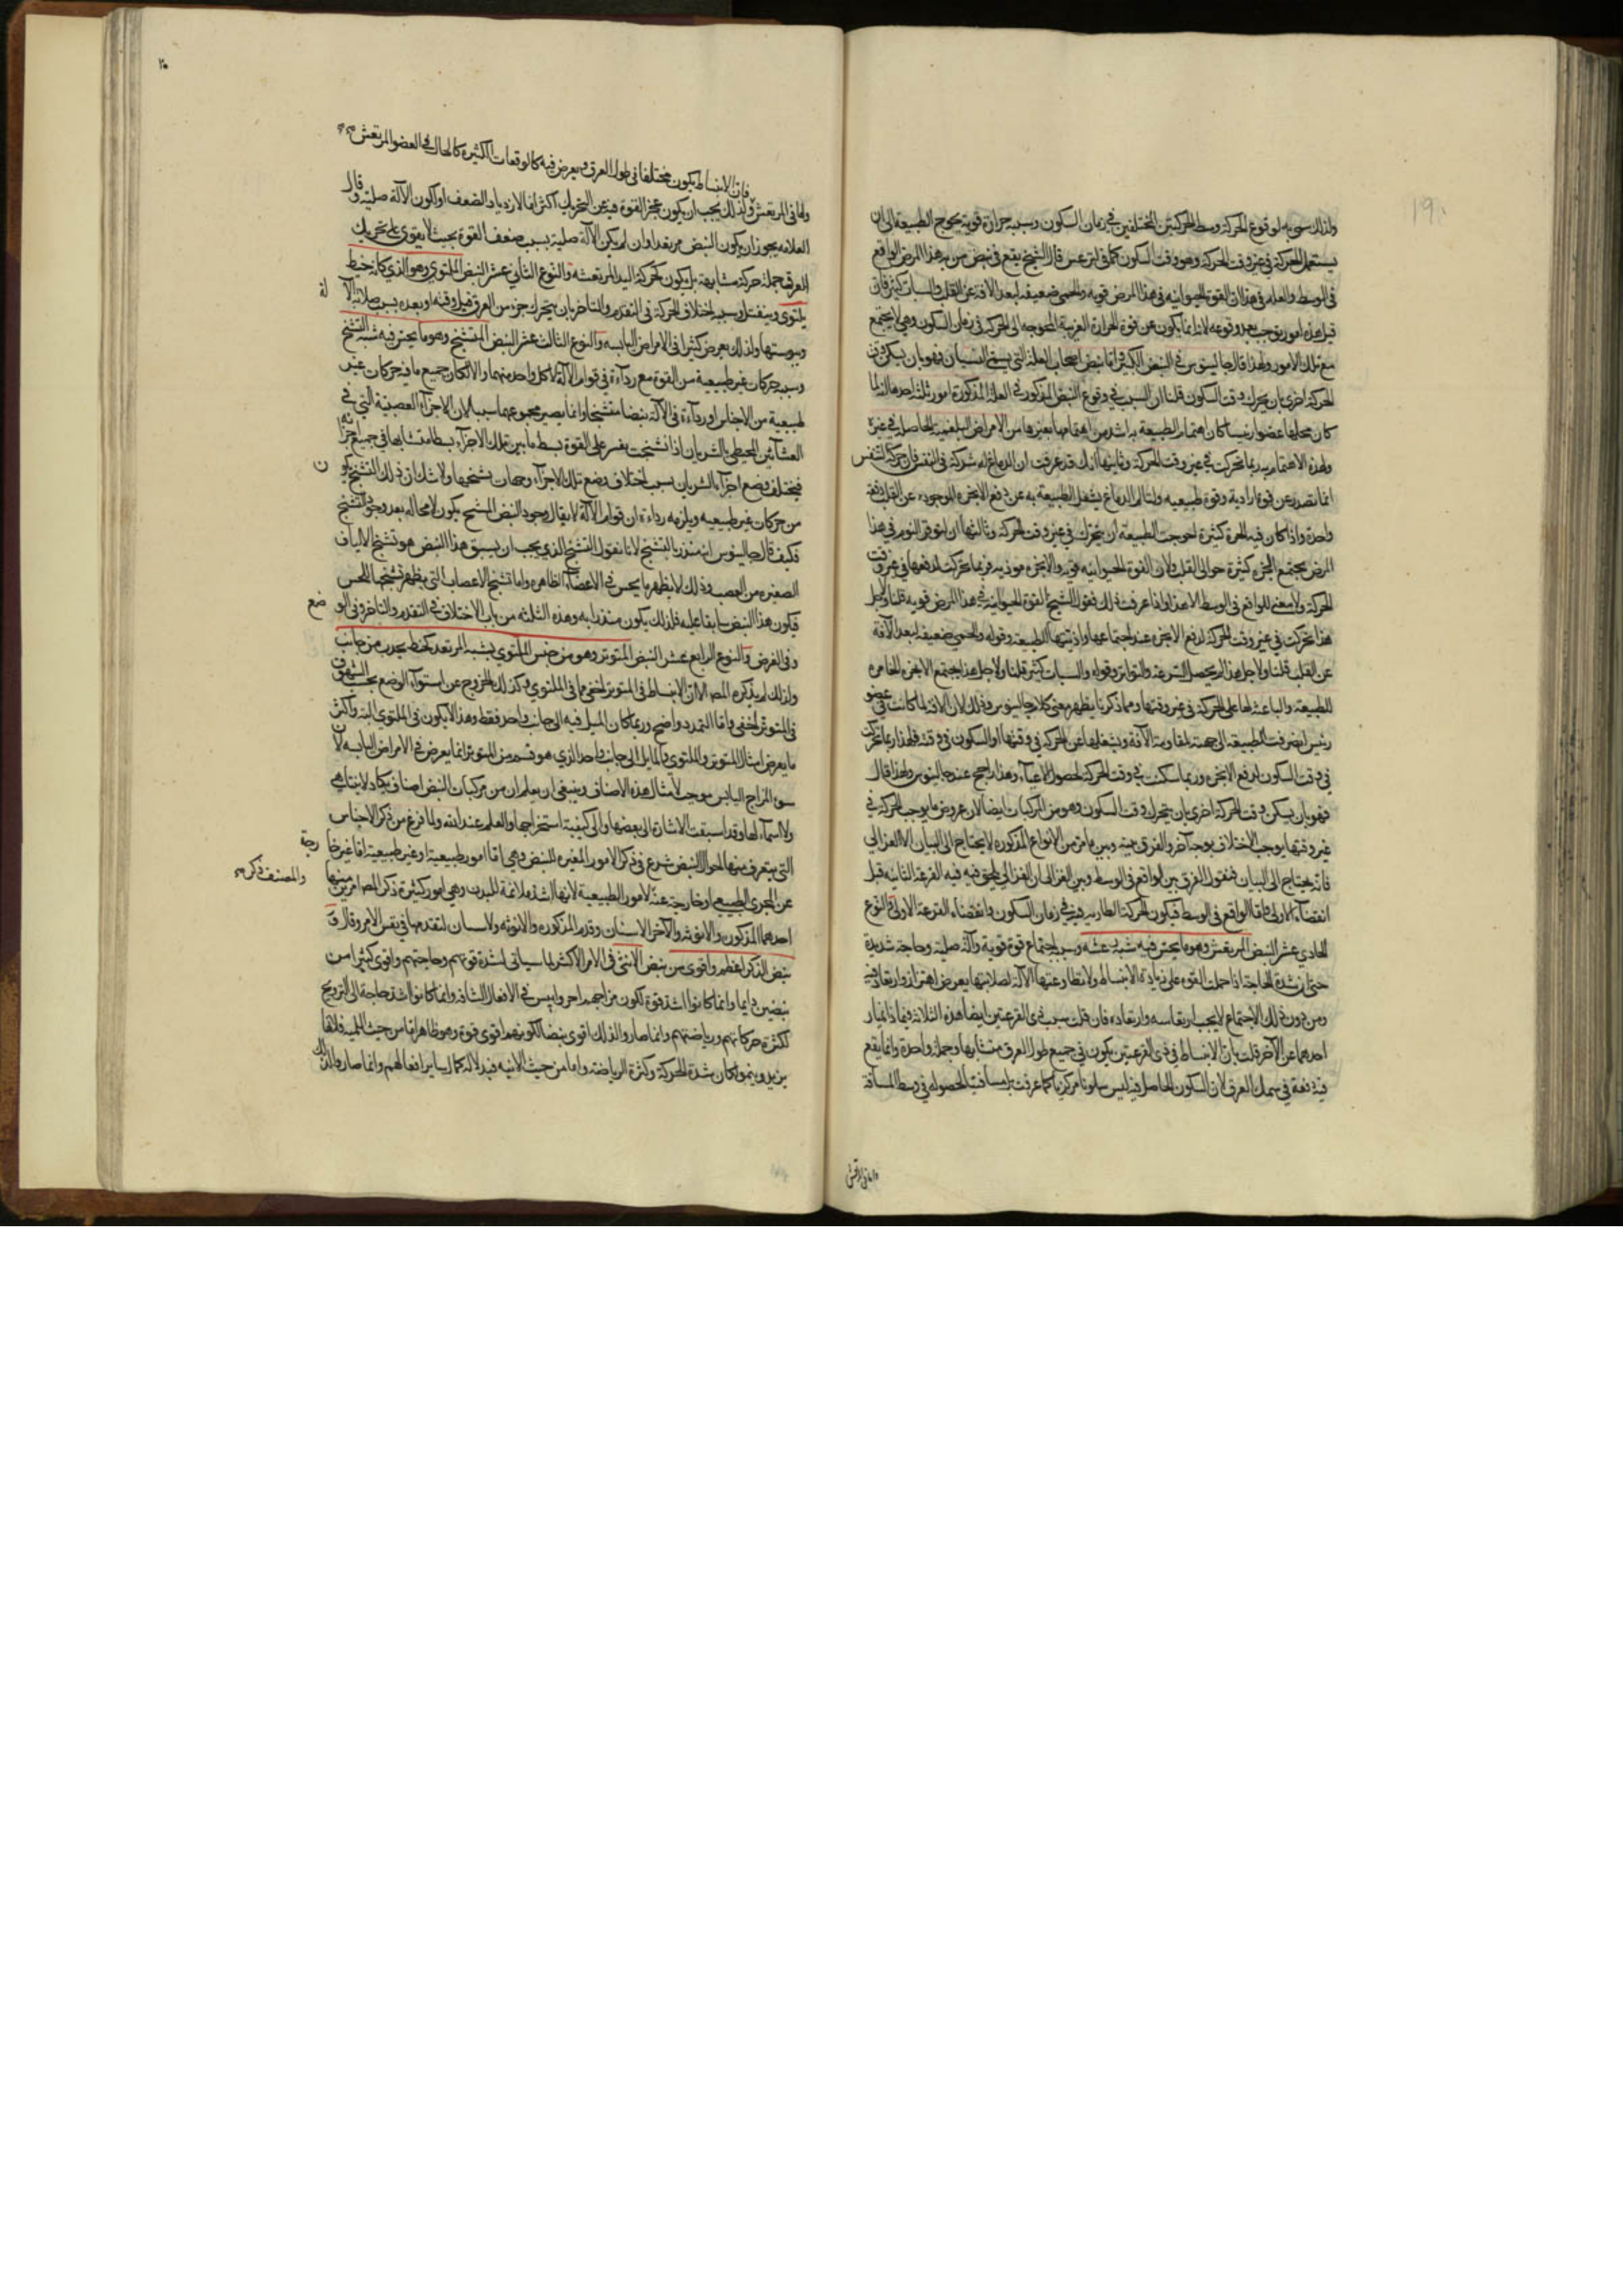 ولذلك سمي به لوقوع الحركة وسط الحركتين المختلفتين في زمان السكون وسببه حرارة قوية يحوج الطبيعة الى ان
يستعمل الحركة في غير وقت الحركة وهو وقت السكون كما في ليثرغس قال الشيخ يقع في نبض من به هذا المرض الواقع
في الوسط والعلة في هذا ان القوة الحيوانية في هذا المرض قوية والحمى ضعيفة لبعد الآفة عن القلب والسبات كثير فان
قيل هذه امور يوجب بعد وقوعه لانه انما يكون عن قوة الحرارة الغريبة المحوجة الى الحركة في زمان السكون وهي لا يجتمع
مع تلك الامور ولهذا قال جالينوس في النبض الكبير اما نبض اصحاب العلة التي يسمى النسيان فهو بان يسكن وقت
الحركة احرى بان يتحرك وقت السكون قلنا ان السبب في وقوع النبض المذكور في العلة المذكورة امور ثلثة احدها انه لما
كان محلها عضوا رئيسا كان اهتمام الطبيعة به اشد من اهتمامها بغيرها من الامراض البلغمية الحاصلة في غيره
ولهذه الاهتمام به ربما تحركت في غير وقت الحركة وثانيها انك قد عرفت ان الدماغ له شركة في التنفس فان حركة التنفس
انما تصدر عن قوة ارادية وقوة طبيعية ولتألم الدماغ يشغل الطبيعة به عن دفع الابخرة الموجودة عن القلب دفعة
واحدة واذا كان فيه ابخرة كثيرة احوجت الطبيعة ان يتحرك في غير وقت الحركة وثالثها ان لتوفر النوم في هذا
المرض يجتمع ابخرة كثيرة حوالي القلب ولان القوة الحيوانية قوية والابخرة موذية فربما تحركت لدفعها في غير وقت
الحركة ولا معنى للواقع في الوسط الا هذا واذا عرفت ذلك فقول الشيخ القوة الحيوانية في هذا المرض قوية قلنا ولاجل
هذا تحركت في غير وقت الحركة لدفع الابخرة عند اجتماعها واذيتها الطبيعة وقوله والحمى ضعيفة لبعد الآفة
عن القلب قلنا ولاجل هذا لم يحصل السرعة والتواتر وقوله والسبات كثير قلنا ولاجل هذا يجتمع الابخرة الغامرة
للطبيعة والباعثة لها على الحركة في غير وقتها ومما ذكرنا يظهر معنى كلام جالينوس وذلك لان الآفة لما كانت في عضو
رئيس انصرفت الطبيعة الى جهته لمقاومة الآفة ويشغلها عن الحركة في وقتها او السكون في وقته فلهذا ربما تحركت
في وقت السكون لدفع الابخرة وربما سكنت في وقت الحركة لحصول الاعياء وهذا راجح عند جالينوس ولهذا قال
فهو بان يسكن وقت الحركة احرى بان يتحرك وقت السكون وهو من المركبات ايضا لان عروض ما يوجب الحركة في
غير وقتها يوجب الاختلاف بوجه آخر والفرق بينه وبين ما مر من الانواع المذكورة لا يحتاج الى البيان الا الغزالي
فانه يحتاج الى البيان فنقول الفرق بين الواقع في الوسط وبين الغزالي ان الغزالي يلحق فيه القرعة الثانية قبل
انقضاء الاولى واما الواقع في الوسط فيكون الحركة الطارية فيه في زمان السكون وانقضاء القرعة الاولى والنوع
الحادي عشر النبض المرتعش وهو ما يحس فيه شبه رعشة وسببه اجتماع قوة قوية وآلة صلبة وحاجة شديدة
حتى ان شدة الحاجة اذا حملت القوة على زيادة الانبساط ولا تطاوعها الآلة لصلابتها يعرض اهتزاز وارتعاد فيه
ومن دون ذلك الاجتماع لا يجب ارتعاشه وارتعاده فان قلت سبب ذي القرعتين ايضا هذه الثلاثة فبماذا يمتاز
احدهما عن الآخر قلت بان الانبساط في ذي القرعتين يكون في جميع طول العرق متشابها وجملة واحدة وانما يقع
فيه دفعة في سمك العرق لان السكون الحاصل فيه ليس سكونا مركزيا كما عرفت بل مسافيا لحصوله في وسط المسافة
واما في المرتعش
٢٠
فان الانبساط يكون مختلفا في طول العرق ويعرض فيه كالوقعات الكثيرة كالحال في العضو المرتعش صح
واما في المرتعش ولذلك يجب ان يكون عجز القوة فيه عن التحريك اكثر اما لازدياد الضعف او لكون الآلة صلبة وقال
العلامة يجوز ان يكون النبض مرتعدا وان لم يكن الآلة صلبة بسبب ضعف القوة بحيث لا يقوى على تحريك
العرق جملة حركة متشابهة بل يكون كحركة اليد المرتعشة والنوع الثاني عشر النبض الملتوي وهو الذي كانه خيط
يلتوي وينفتل وسببه اختلاف الحركة في التقدم والتاخر بان يتحرك جزء من العرق قبل وقته او بعده بسبب صلابة الآلة
ويبوستها ولذلك يعرض كثيرا في الامراض اليابسة والنوع الثالث عشر النبض المتشنج وهو ما يحس فيه شبه التشنج
وسببه حركات غير طبيعية من القوة مع رداءة في قوام الآلة لا كل واحد منهما والا لكان جميع ما فيه حركات غير
طبيعية من الاجناس او رداءة في الآلة نبضا متشنجا وانما يصير مجموعهما سببا لان الاجزاء العصبية التي في
الغشائين المحيطين بالشريان اذا تشنجت يعسر على القوة بسط ما بين تلك الاجزاء بسطا متشابها في جميع اجزائه
فيختلف وضع اجزاء الشريان بسبب اختلاف وضع تلك الاجزاء وجهات تشنجها ولا شك ان ذلك التشنج يكون
من حركات غير طبيعية ويلزمه رداءة ان قوام الآلة لا يقال وجود النبض المتشنج يكون لا محالة بعد وجود التشنج
فكيف قال جالينوس انه منذر بالتشنج لانا نقول التشنج الذي يجب ان يسبق هذا النبض هو تشنج الالياف
الصغيرة من العصب وذلك لا يظهر ما يحس في الاعضاء الظاهرة واما تشنج الاعصاب التي يظهر تشنجها للحس
فيكون هذا النبض سابقا عليه فلذلك يكون منذرا به وهذه الثلثة من باب الاختلاف في التقدم والتاخر وفي الوضع
وفي العرض والنوع الرابع عشر النبض المتوتر وهو من جنس الملتوي يشبه المرتعد كخيط يجذب من جانب
ولذلك لم يذكره المص الا ان الانبساط في المتوتر اخفى مما في الملتوي وكذلك الخروج عن استواء الوضع بحسب الشهوق
في المتوتر اخفى واما التمدد واضح وربما كان الميل فيه الى جانب واحد فقط وهذا لا يكون في الملتوي البتة واكثر
ما يعرض امثال المتوتر والملتوي والمايل الى جانب واحد الذي هو قسم من المتوتر انما يعرض في الامراض اليابسة لان
سوء المزاج اليابس موجب لامثال هذه الاصناف وينبغي ان يعلم ان من مركبات النبض اصناف يكاد لا يتناهى
ولا اسماء لها وقد اسبقت الاشارة الى بعضها والى كيفية استخراجها والعلم عند الله ولما فرغ من ذكر الاجناس
التي يتعرف منها احوال النبض شرع في ذكر الامور المغيرة للنبض وهي اما امور طبيعية او غير طبيعية اما غير خارجة
عن المجرى الطبيعي او خارجة عنه والامور الطبيعية لانها اشد ملائمة للبدن وهي امور كثيرة ذكر المص امرين منها
والمصنف ذكر صح
احدهما الذكورة والانوثة والآخر الاسنان وقدم الذكورة والانوثة والاسنان لتقدمها في نفس الامر وقال و
نبض الذكر اعظم واقوى من نبض الانثى في الامر الاكثر لما سياتي لشدة قوتهم وحاجتهم واقوى كثيرا من
نبضهن دايما وانما كانوا اشد قوة لكون مزاجهم احر وايبس في الافعال الشاقة وانما كانوا اشد حاجة الى الترويح
لكثرة حركاتهم ورياضتهم وانما صار والذلك اقوى نبضا لكونهم اقوى قوة وهو ظاهر اما من حيث اللمية فلانها
يزيد وينمو لمكان شدة الحركة وكثرة الرياضة واما من حيث الانية فبدلالة كمال ساير افعالهم وانما صاروا لذلك